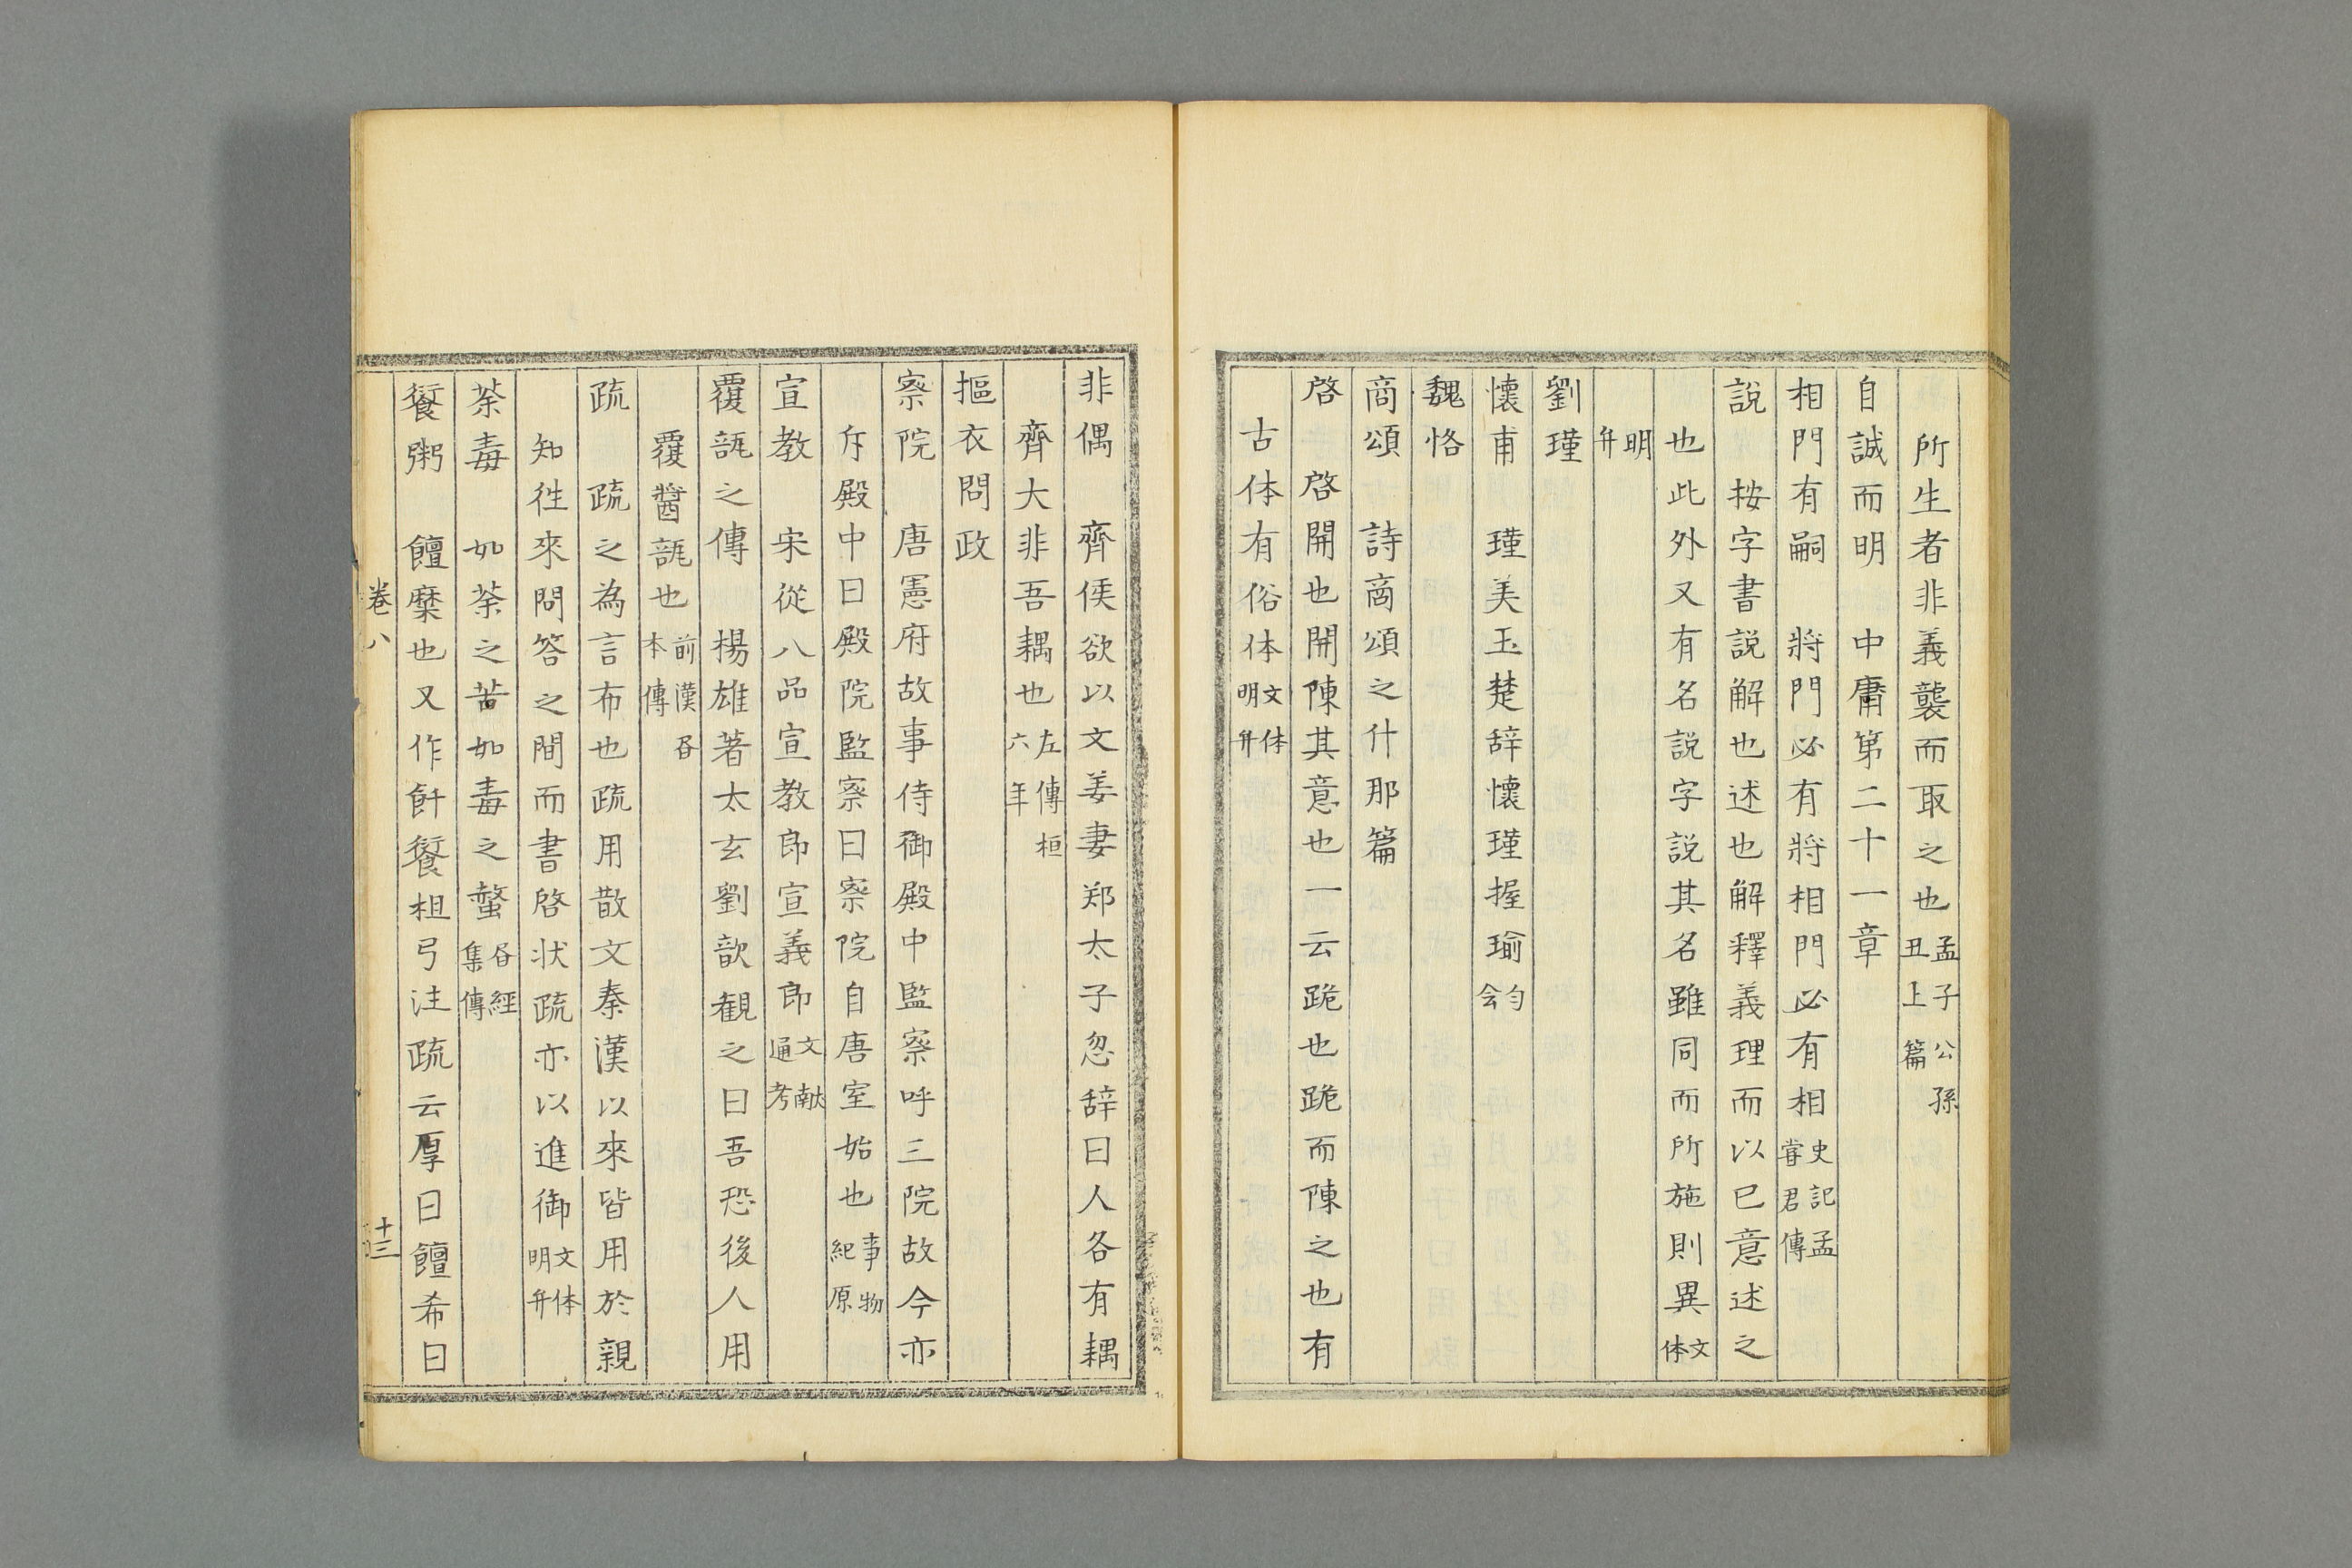 所生者非義襲而取之也孟子公孫丑上篇
自誠而明 中庸第二十一章
相門有嗣 將門必有將相門必有相史記孟嘗君傳
說 按字書說解也述也解釋義理而以已意述之
也此外又有名說字說其名雖同而所施則異文体
明弁
劉瑾
懷甫 瑾美玉楚辞懷瑾握瑜匀会
魏恪
商頌 詩商頌之什那篇
啓 啓開也開陳其意也一云跪也跪而陳之也有
古体有俗体文体明弁
非偶 齊侯欲以文姜妻郑太子忽辞曰人各有耦
齊大非吾耦也左傳桓六年
摳衣問政
察院 唐憲府故事侍御殿中監察呼三院故今亦
斥殿中曰殿院監察曰察院自唐室始也事物紀原
宣教 宋從八品宣教郎宣義郎文献通考
覆瓿之傳 楊雄著太玄劉歆観之曰吾恐後人用
覆醬瓿也前漢昏本傳
疏 疏之為言布也疏用散文秦漢以來皆用於親
知徃來問答之間而書啓状疏亦以進御文体明弁
荼毒 如荼之苦如毒之螫昏經集傳
餐粥 饘糜也又作飦餐柤弓注疏云厚曰饘希曰
卷八
十三